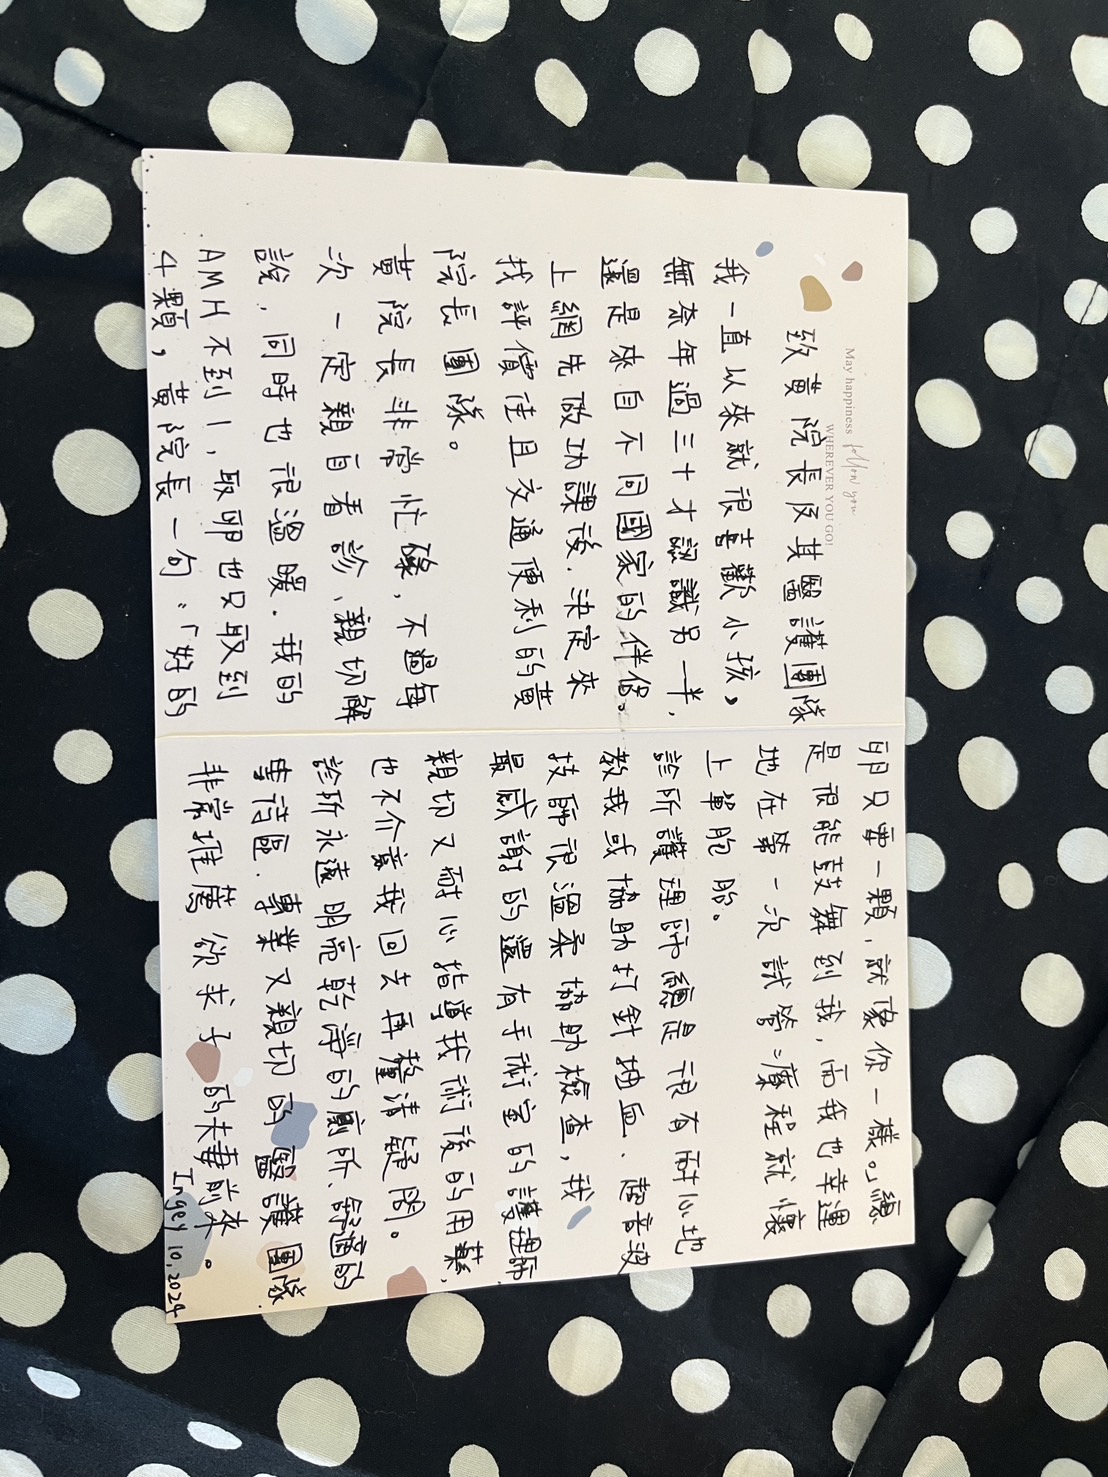 May happiness follow you
WHEREVER YOU GO!
致黃院長及其醫護團隊
我一直以來就很喜歡小孩，
無奈年過三十才認識另一半，
還是來自不同國家的伴侶。
上網先做功課後，決定來
找評價佳且交通便利的黃
院長團隊。
黃院長非常忙碌，不過每
次一定親自看診、親切解
說，同時也很溫暖。我的
AMH不到1，取卵也只取到
4顆，黃院長一句：「好的
卵只要一顆，就像你一樣。」總
是很能鼓舞到我，而我也幸運
地在第一次試管療程就懷
上單胞胎。
診所護理師總是很有耐心地
教我或協助打針抽血、超音波
技師很溫柔協助檢查，我
最感謝的還有手術室的護理師
親切又耐心指導我術後的用藥，
也不介意我回去再釐清疑問。
診所永遠明亮乾淨的廁所、舒適的
等待區、專業又親切的醫護團隊
非常推薦欲求子的夫妻前來。
Ingey 10, 2024